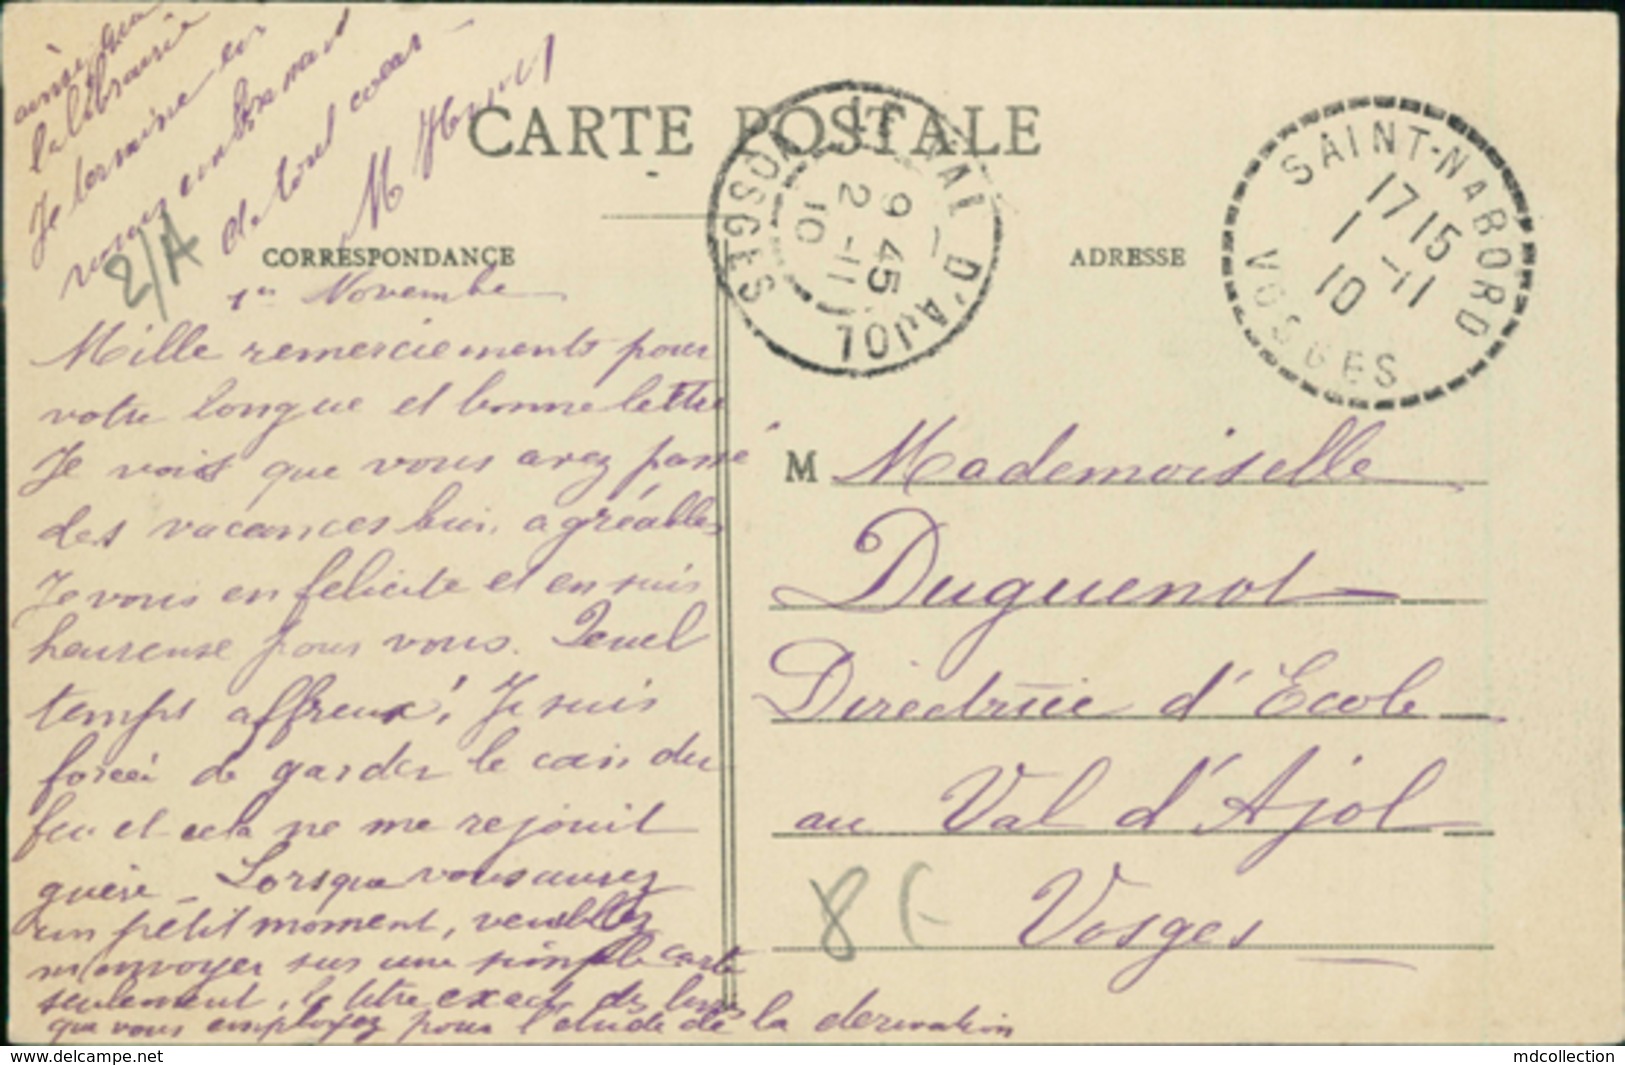 CARTE POSTALE
CORRESPONDANCE
ADRESSE
1er Novembre
Mille remerciements pour
votre longue et bonne lettre
Je vois que vous avez passé
des vacances bien agréables
Je vous en felicite et en suis
heureuse pour vous. Quel
temps affreux! Je suis
forcée de garder le coin du
feu et cela ne me rejouit
guère _ Lorsque vous aurez
un petit moment, veuillez
m'envoyer sur une simple carte
seulement, le titre exact des livres
que vous employez pour l'étude de la derivation
ainsi que
la librairie
Je termine en
vous embrassant
de tout coeur -
M
2/A
M Mademoiselle
Duguenot
Directrice d'Ecole
au Val d'Ajol
Vosges
8 €
LE VAL D'AJOL
VOSGES
9 45
2 -11
10
SAINT-NABORD
17 15
1 -11
10
VOSGES
www.delcampe.net
mdcollection